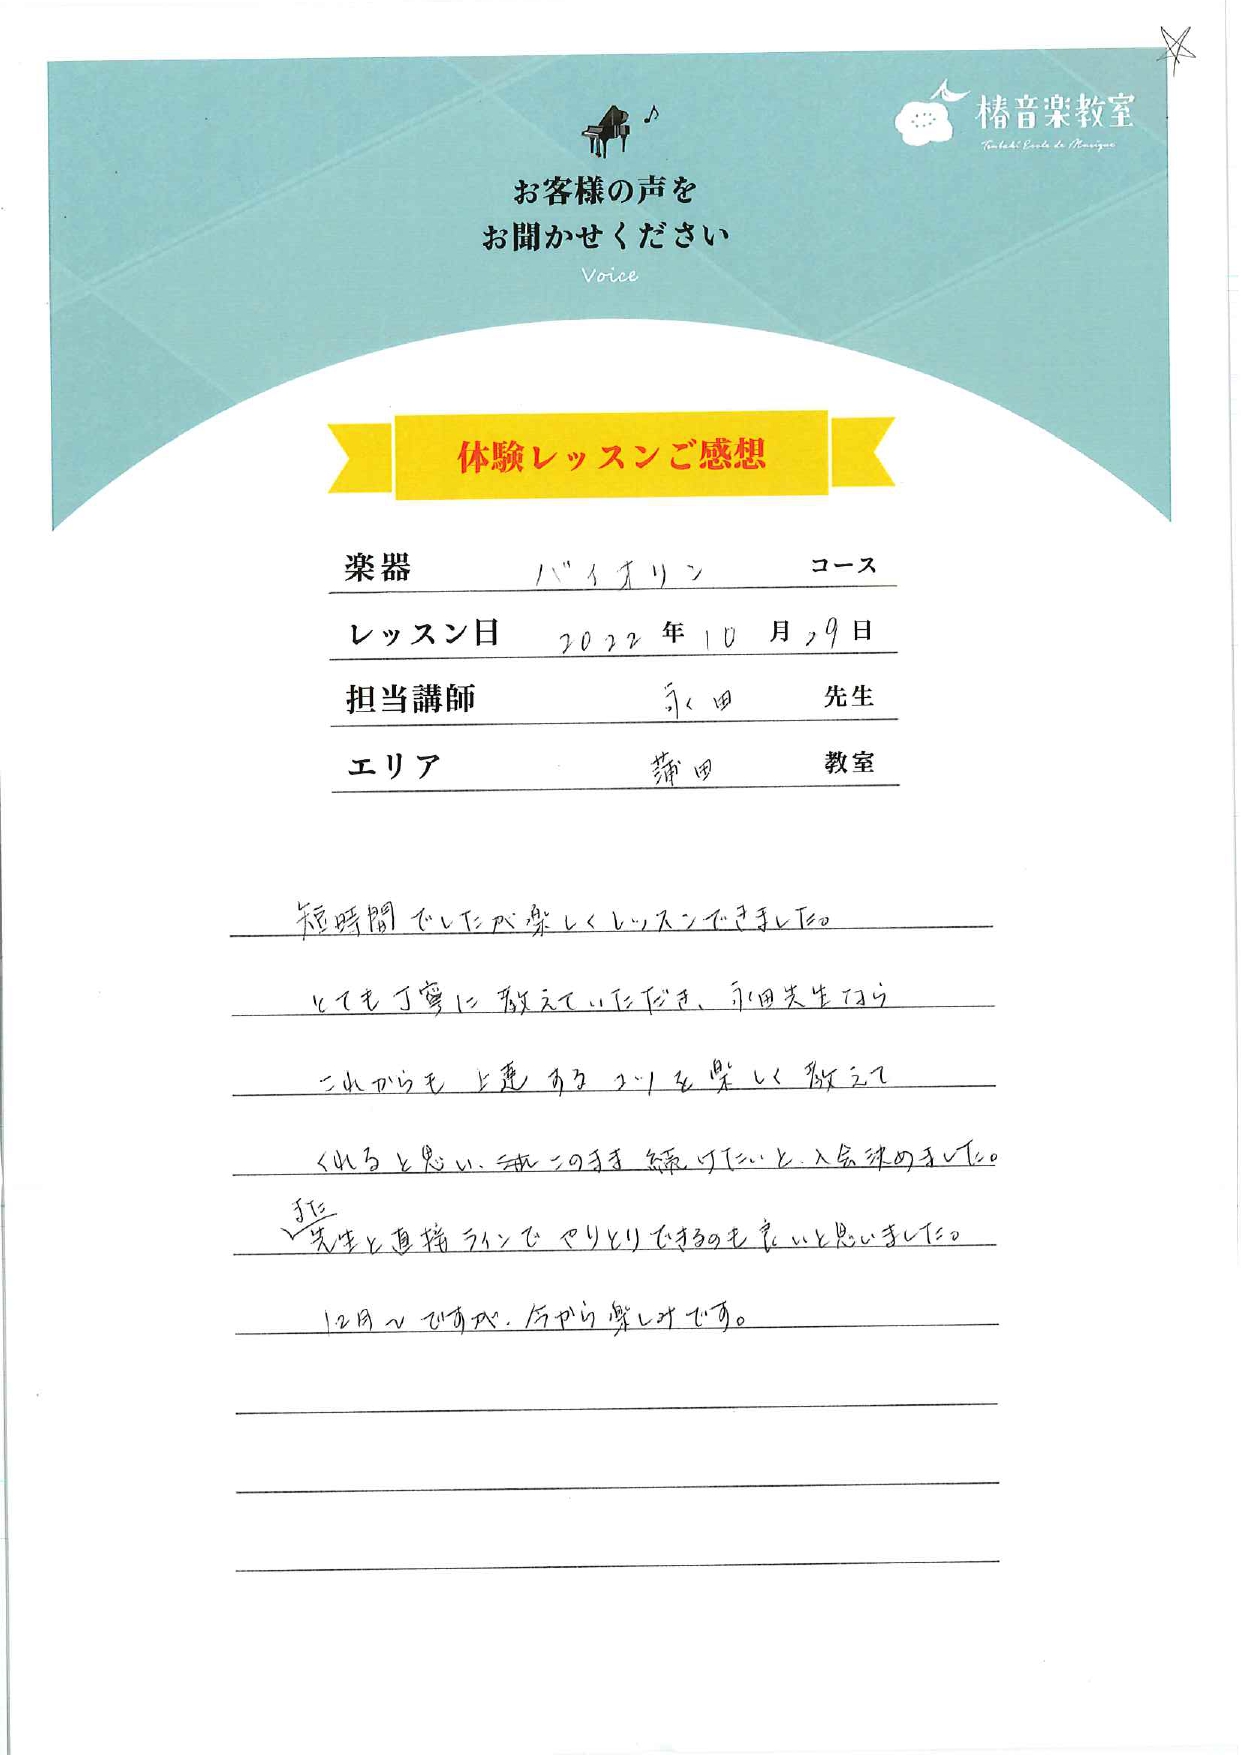 椿音楽教室
Tsubaki Ecole de Musique
お客様の声を
お聞かせください
Voice
体験レッスンご感想
楽器 バイオリン コース
レッスン日 2022 年 10 月 29 日
担当講師 永田 先生
エリア 蒲田 教室
短時間でしたが楽しくレッスンできました。
とても丁寧に教えていただき、永田先生なら
これからも上達するコツを楽しく教えて
くれると思い、このまま続けたいと、入会決めました。
また
先生と直接ラインでやりとりできるのも良いと思いました。
12月〜ですが、今から楽しみです。